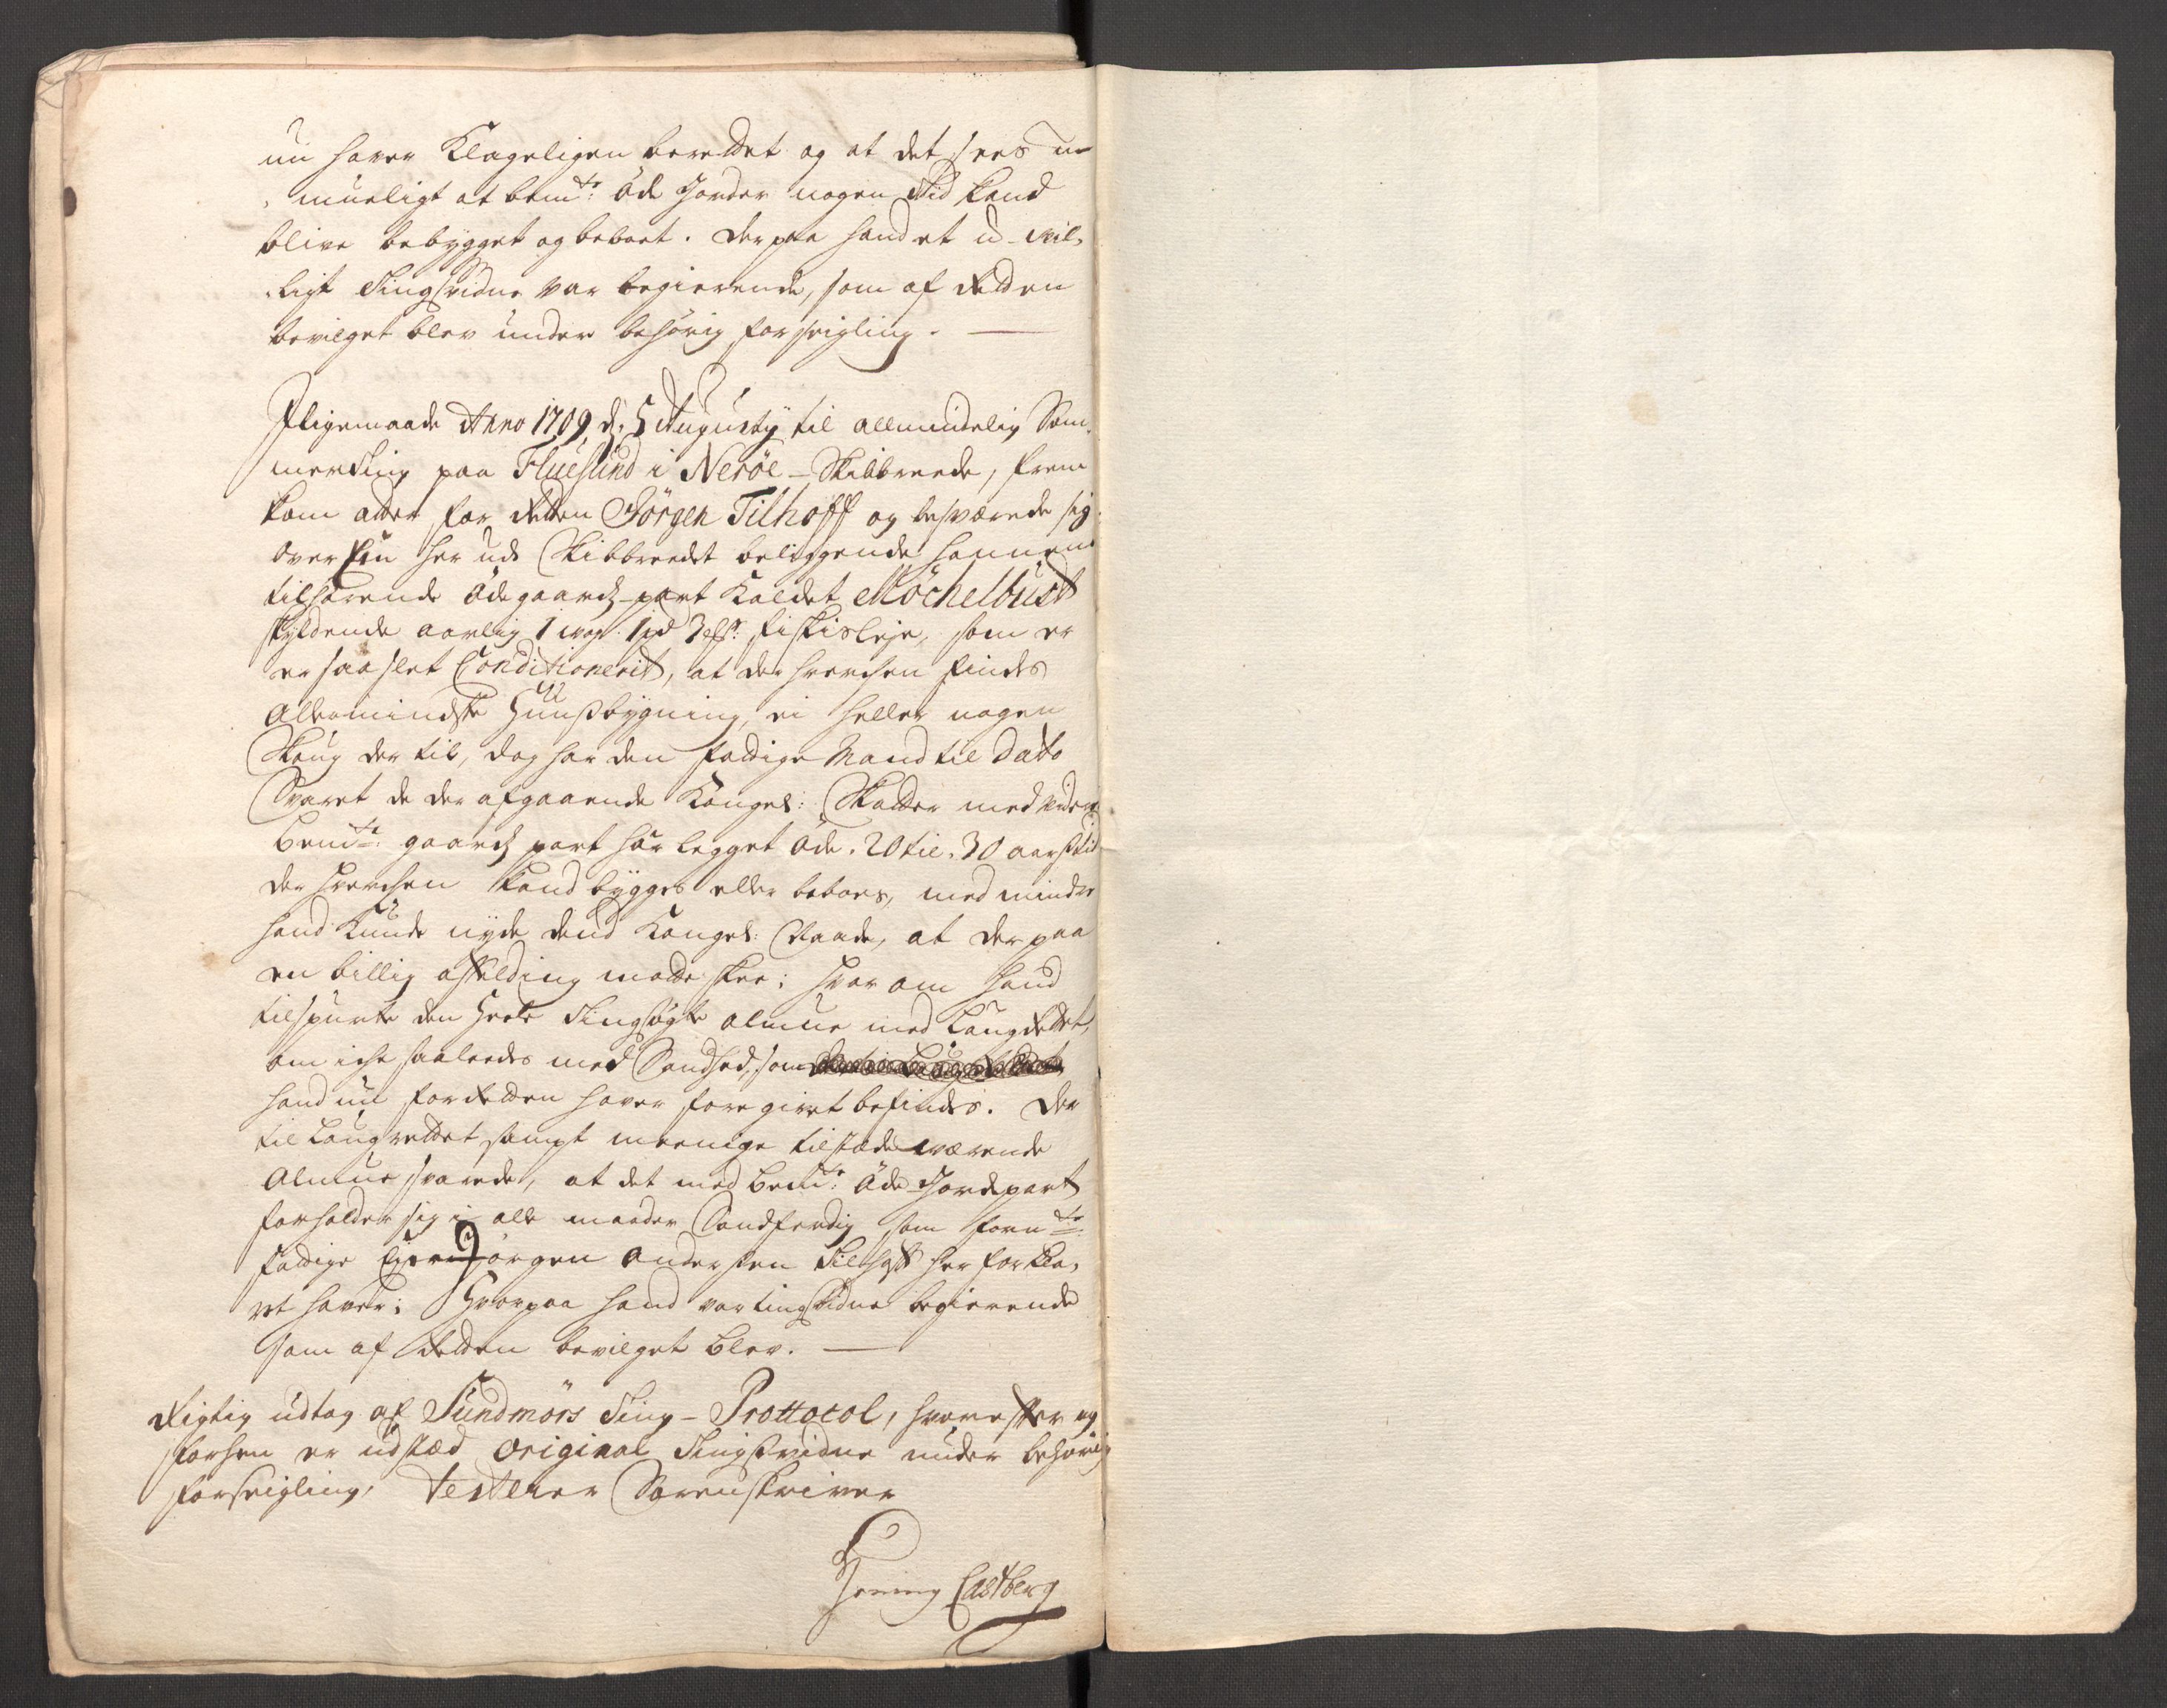 nu haver Klageligen berettet og at det sees u-
mueligt at bem:te Öde Jorder nogen Tid kand
blive bebygget og beboet. Derpaa hand et u-vil-
ligt Tingsvidne var begierende, som af Retten
bevilget blev under behörig forseigling. —
Iligemaade Anno 1709, d: 5 Augusty til allmindelig Som-
merting paa Fluesund i Neröe-Skibbrede, frem
kom atter for Retten Jörgen Tilhoff og besværede sig
over hin her udi Skibbredet beliggende hannem
tilhörende ödegaards-part Kaldet Möchelbust
skyldende aarlig 1 wog: 1 pd 3 : fiskisleje, som er
er saa slet Conditionerit, at der hverchen findes
Allermindste Huußbygning, ei heller nogen
Skoug der til, dog har den fattige Mand til Dato
Svaret de der afgaaende Kongel: Skatter med videre
Bem:te gaards part har legget öde. 20 til. 30 aars tid
der hverchen kand bygges eller beboes, med mindre
hand Kunde nyde dend Kongel: Naade, at derpaa
en billig afskilding motte skee; hvor om hand
tilspurte den heele Tingsögte almue med Laugrettet,
om iche saaledes med Sandhed, som
hand nu for Retten haver foregivet befindes. Der
til Laugrettet sampt meenige tilstædeværende
Almue svarede, at det med bem:te Öde Jordepart
forholder sig i alle maader Sandferdig som forn:te
fattige Ejere Jörgen Andersen Tilhoff her forkla-
ret haver; Hvorpaa hand var tingsvidne begierende
som af Retten bevilget blev. —
Rigtig udtog af Sundmörs Ting-Prottocol, hvorefter og
forhen er udstæd original Tingsvidne under behörig
forseigling, testerer Sorenskriver
Castberg